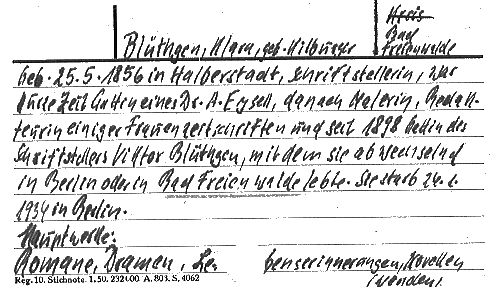 Kreis
Bad
Freienwalde
Blüthgen, Klara, geb. Kilburger
Geb. 25.5.1856 in Halberstadt, Schriftstellerin, war
kurze Zeit Gattin eines Dr. A. Eysell, danach Malerin, Redak-
teurin einiger Frauenzeitschriften und seit 1898 Gattin des
Schriftstellers Viktor Blüthgen, mit dem sie abwechselnd
in Berlin oder in Bad Freienwalde lebte. Sie starb 24.1.
1934 in Berlin.
Hauptwerke:
Romane, Dramen, Le-
benserinnerungen, Novellen
(wenden).
Reg. 10. Stichnote. 1.50. 232400 A. 803. S. 4062